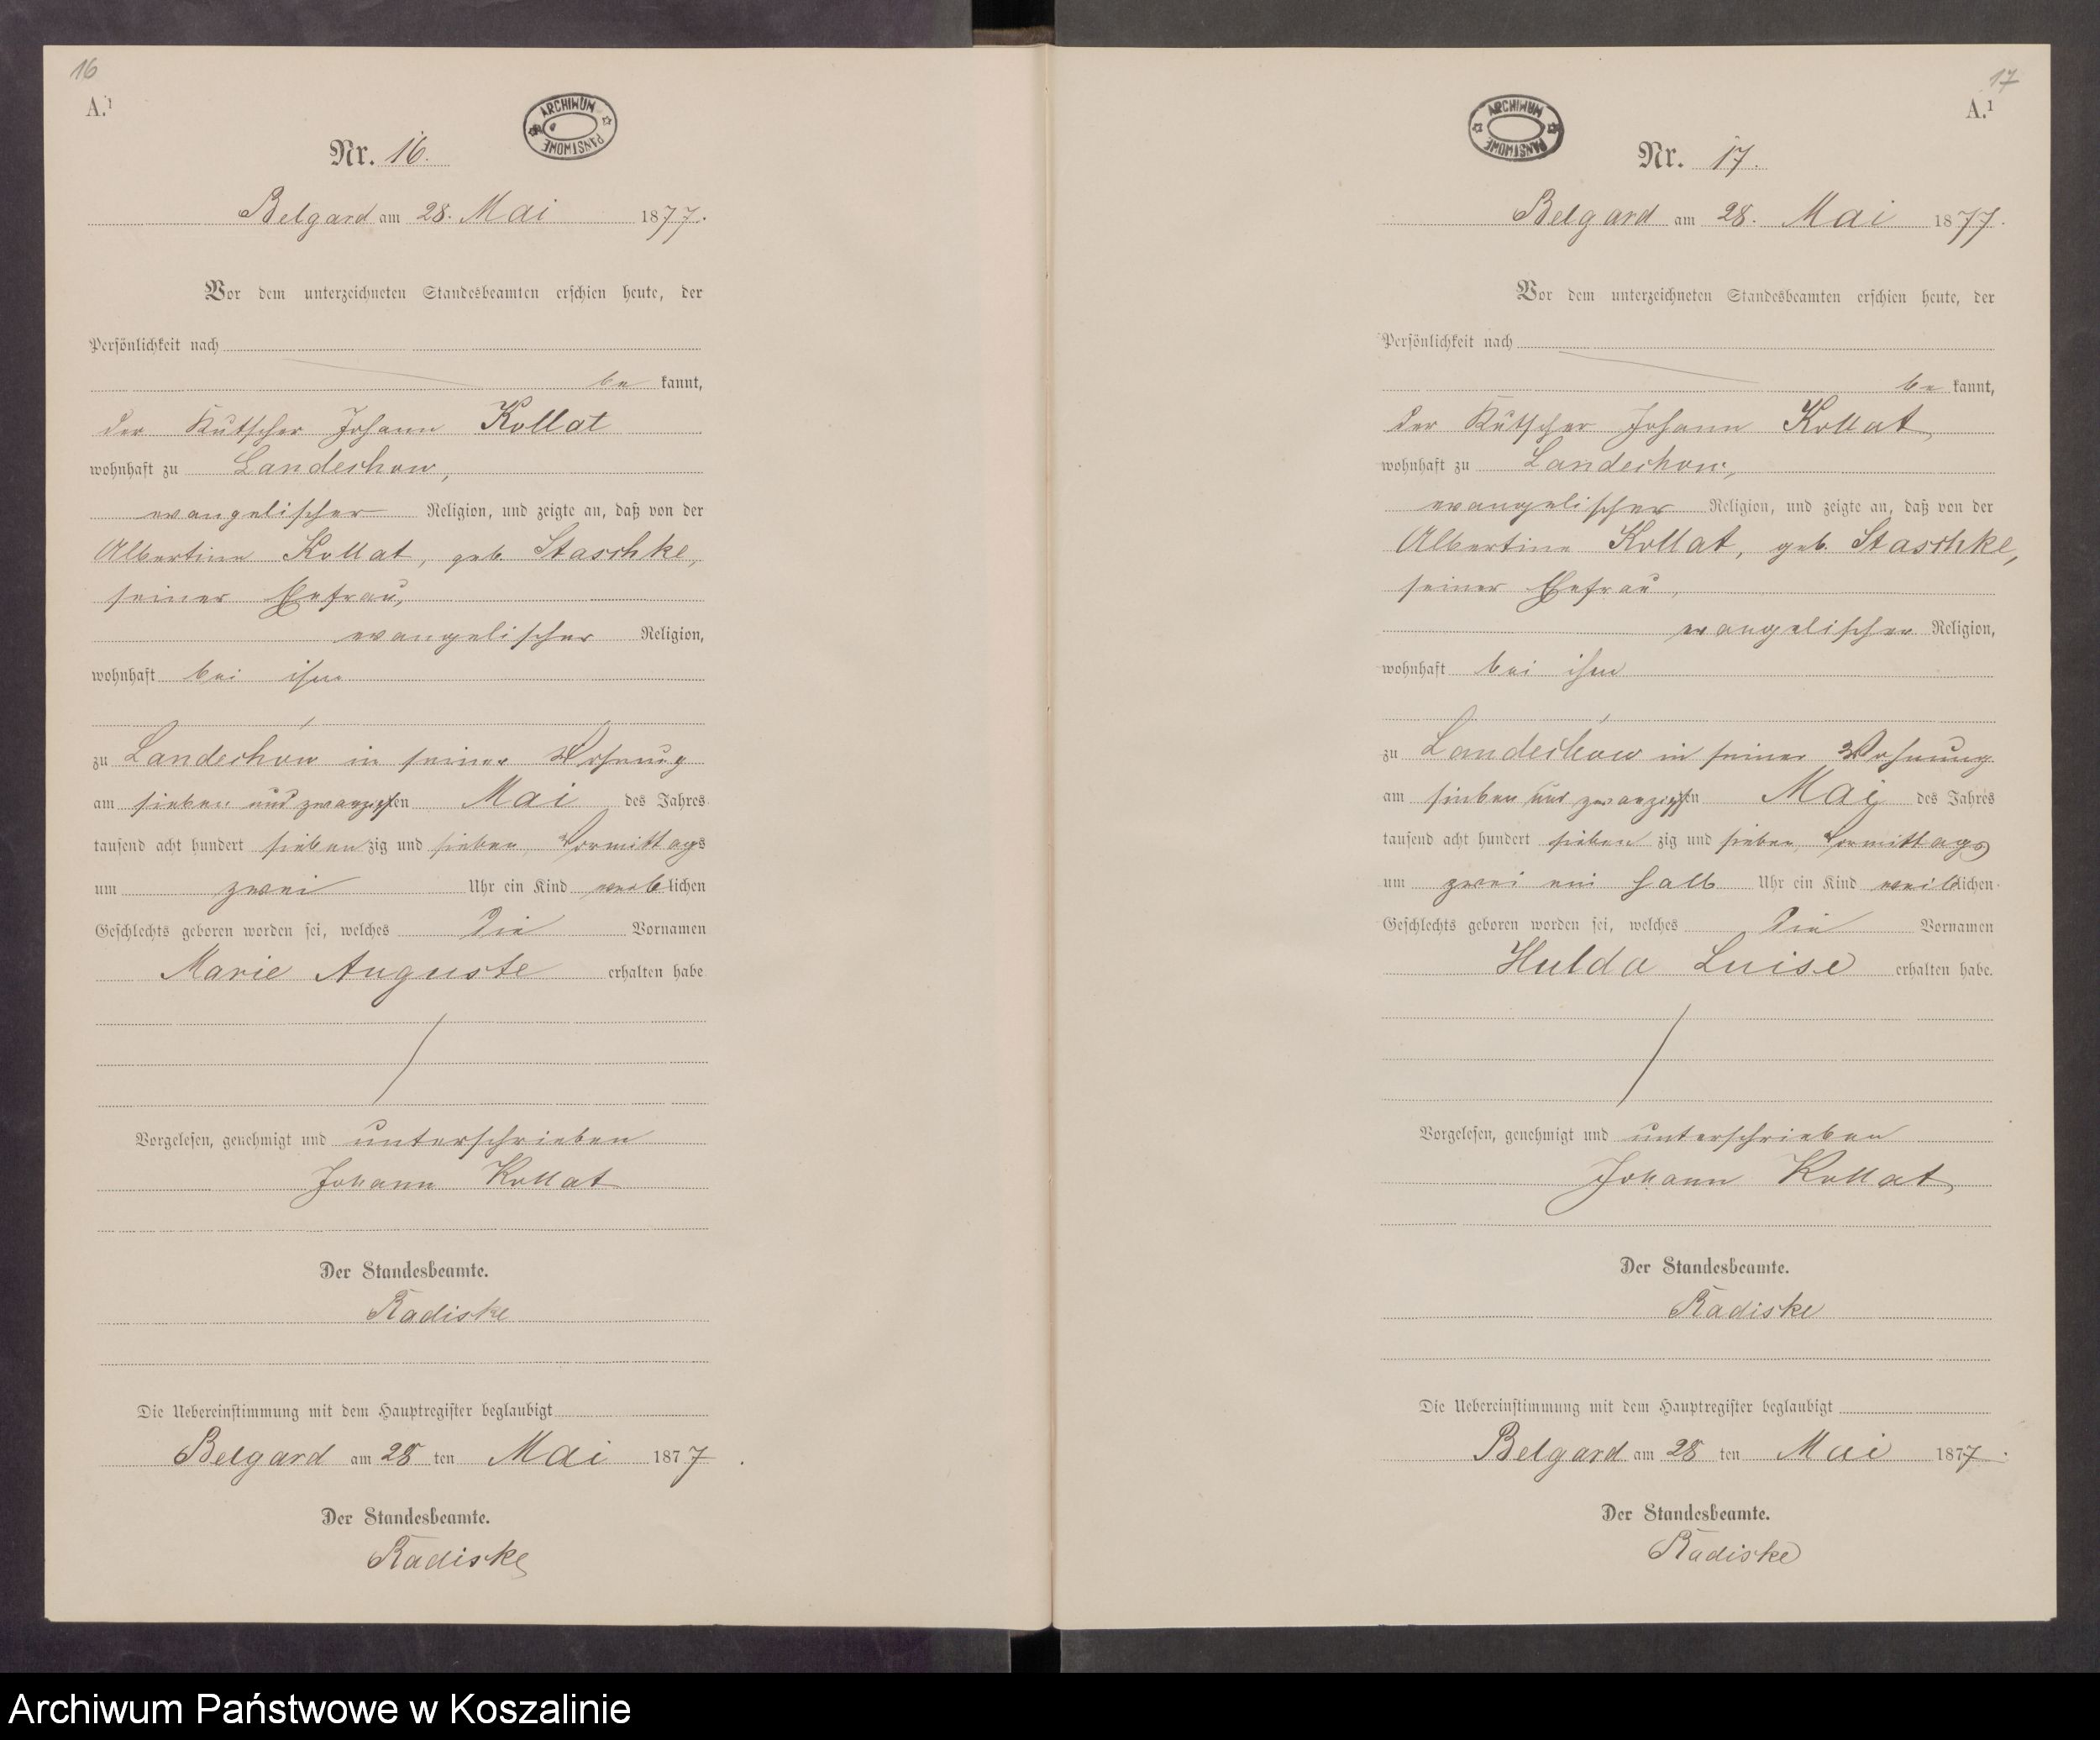 16
A.¹
ARCHIWUM PAŃSTWOWE
Nr. 16.
Belgard am 28. Mai 1877.
Vor dem unterzeichneten Standesbeamten erschien heute, der
Persönlichkeit nach
be kannt,
der Kutscher Johann Kollat
wohnhaft zu Landechow,
evangelischer Religion, und zeigte an, daß von der
Albertine Kollat, geb. Staschke,
seiner Ehefrau,
evangelischer Religion,
wohnhaft bei ihm
zu Landechow in seiner Wohnung
am sieben und zwanzigsten Mai des Jahres
tausend acht hundert sieben zig und sieben, Vormittags
um zwei Uhr ein Kind weiblichen
Geschlechts geboren worden sei, welches die Vornamen
Marie Auguste erhalten habe
Vorgelesen, genehmigt und unterschrieben
Johann Kollat
Der Standesbeamte.
Radiske
Die Uebereinstimmung mit dem Hauptregister beglaubigt
Belgard am 28 ten Mai 1877
Der Standesbeamte.
Radiske
17
A.¹
ARCHIWUM PAŃSTWOWE
Nr. 17.
Belgard am 28. Mai 1877.
Vor dem unterzeichneten Standesbeamten erschien heute, der
Persönlichkeit nach
be kannt,
der Kutscher Johann Kollat
wohnhaft zu Landechow,
evangelischer Religion, und zeigte an, daß von der
Albertine Kollat, geb. Staschke,
seiner Ehefrau,
evangelischer Religion,
wohnhaft bei ihm
zu Landechow in seiner Wohnung
am sieben und zwanzigsten Mai des Jahres
tausend acht hundert sieben zig und sieben, Vormittags
um zwei ein halb Uhr ein Kind weiblichen
Geschlechts geboren worden sei, welches die Vornamen
Hulda Luise erhalten habe.
Vorgelesen, genehmigt und unterschrieben
Johann Kollat
Der Standesbeamte.
Radiske
Die Uebereinstimmung mit dem Hauptregister beglaubigt
Belgard am 28 ten Mai 1877.
Der Standesbeamte.
Radiske
Archiwum Państwowe w Koszalinie